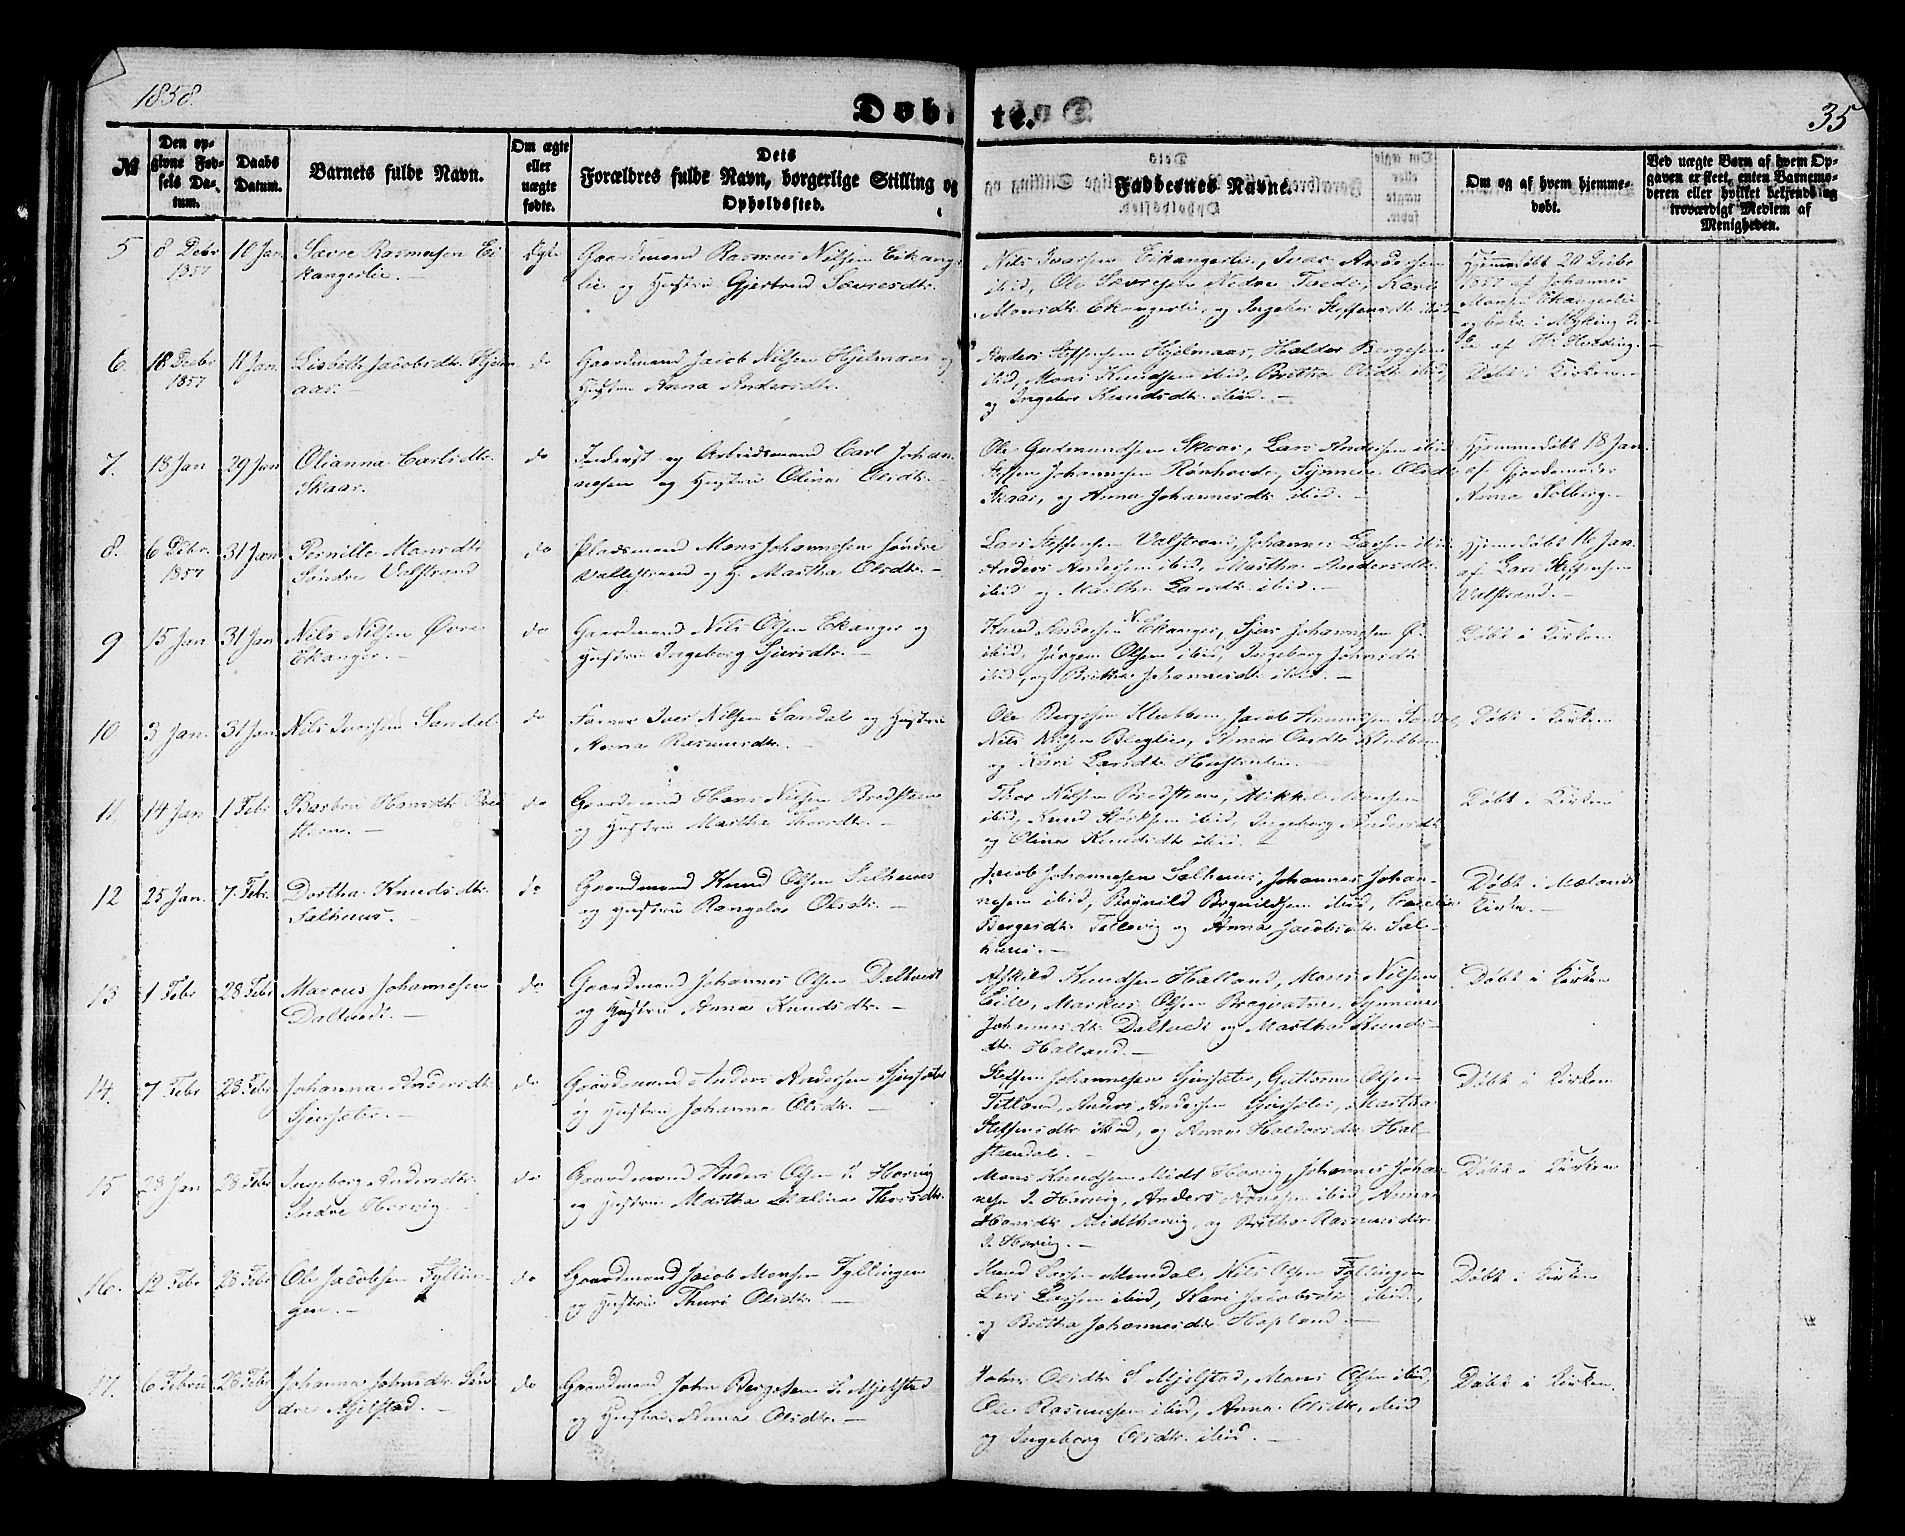 1858.
Døbte.
35
№
Den op-
givne Fød-
sels Da-
tum.
Daabs
Datum.
Barnets fulde Navn.
Om ægte
eller
uægte
fødte.
Dets
Forældres fulde Navn, borgerlige Stilling og
Opholdssted.
Faddernes Navne.
Om og af hvem hjemme-
døbt.
Ved uægte Børn af hvem Op-
gaven er skeet, enten Barnemo-
deren eller hvilket bekjendt og
troværdigt Medlem af
Menigheden.
5 8 Debr 10 Jan Sævre Rasmussen Ei- Ægte Gaardmand Rasmus Nilsen Eikang-
1857 kangerlie.- lie og Hustru Gjertrud Sævresdtr.
Nils Ivarsen Eikangerlie, Ivar Andersen
ibid, Ole Sævresen Nedre Tvedt, Kari
Monsdtr Ekangerlie, og Ingebor Steffensdtr ibid
Hjemmedøbt 20 Debr
1857 af Johannes
Monsen Ekangerlie
6. 18 Debr 11 Jan. Lisbeth Jacobsdtr Hjelm- do Gaardmand Jacob Nilsen Hjelmaas og
1857 aas. Hustru Anna Andersdtr.
Anders Steffensen Hjelmaas, Haldor Bergesen
ibid, Mons Knudsen ibid, Britha Olsdtr ibid,
og Ingebor Knudsdtr. ibid.-
Døbt i Kirken.
7. 18 Jan 29 Jan Olianna Carlsdtr. do Inderst og Arbeidsmand Carl Johan-
Skaar. nesen og Hustru Olina Olsdtr.-
Ole Gudmundsen Skaar, Lars Andersen ibid
Steffen Johannesen Rønhovde, Synneve Olsdtr
Skaar, og Anna Johannesdtr ibid.-
Hjemmedøbt 18 Jan.
af Gjordemoder
Anna Solberg.
8. 6 Debr. 31 Jan Pernille Monsdtr do Pladsmand Mons Johannesen Søndre
1857 Søndre Valstrand Vallestrand og H. Martha Olsdtr.-
Lars Steffensen Valstrand, Johannes Larsen ibid
Anders Andersen ibid, Martha Andersdtr.
ibid og Martha Larsdtr ibid.-
Hjemmedøbt 16 Jan.
af Lars Steffensen
Valstrand.-
9 15 Jan 31 Jan Nils Nilsen Øvre do Gaardmand Nils Olsen Ekanger og
Ekanger.- Hustru Ingeborg Sjursdtr.-
Knud Andersen N. Ekanger, Sjur Johannesen Ø.
ibid, Jørgen Olsen ibid, Ingeborg Johnsdtr
ibid, og Britha Johannesdtr ibid.-
Døbt i Kirken
10. 3 Jan. 31 Jan. Nils Iversen Sandal do Farver Iver Nilsen Sandal og Hustru
Anna Rasmusdtr.
Nils Nilsen Berglie, Anna Olsdtr Klubben
og Kari Larsdtr
Døbt i Kirken
11. 14 Jan 1 Febr Barbru Hansdtr Bred- do Gaardmand Hans Nilsen Bredsteen
steen.- og Hustru Martha Thorsdtr.-
Thor Nilsen Bredsteen, Mikkel Monsen
ibid, Knud Størksen ibid, Ingeborg Andersdtr
og Olina Knudsdtr ibid.-
Døbt i Kirken
12 25 Jan. 7 Febr. Dortha Knudsdtr. do Gaardmand Knud Olsen Salhuus
Salhuus.- og Hustru Rangela Olsdtr.-
Jacob Johannesen Salhuus, Johannes Johan-
nesen ibid, Brynild Brynildsen ibid,
Bergesdtr. Tellevig og Anna Jacobsdtr Sal-
huus.-
Døbt i Mælands
Kirke.-
13 1 Febr 28 Febr Marcus Johannesen do Gaardmand Johannes Olsen Daltvedt
Daltvedt.- og Hustru Anna Knudsdtr.-
Askild Knudsen Halland, Mons Nilsen
Eide, Markus Olsen Bregvatne, Synneve
Johannesdtr. Daltvedt og Martha Knuds-
dtr. Halland.-
Døbt i Kirken
14. 7 Febr 28 Febr Johanna Andersdtr do Gaardmand Anders Andersen Sjursæter
Sjursæter.- og Hustru Johanna Olsdtr.-
Steffen Johannesen Sjursæter, Guttorm Olsen
Titland, Anders Andersen Sjursæter, Martha
Steffensdtr ibid, og Anna Haldorsdtr Hal-
Døbt i Kirken
15 28 Jan 28 Febr Ingeborg Andersdtr. do Gaardmand Anders Olsen I. Horvig
Indre Horvig. og Hustru Martha Malina Thorsdtr.
Mons Knudsen Midt Horvig, Johannes Johan-
nesen I. Horvig, Anders Arnesen ibid, Anna
Hansdtr Midthorvig, og Britha Rasmusdtr
I. Horvig.-
Døbt i Kirken
16. 12 Febr 28 Febr Ole Jacobsen Fyllin- do Gaardmand Jacob Monsen Fyllingen
gen.- og Hustru Thuri Olsdtr.-
Knud Larsen Mundal, Nils Olsen Fyllingen
Lars Larsen ibid, Kari Jacobsdtr ibid,
og Britha Johannesdtr. Hopland.-
Døbt i Kirken
17. 6 Februar 28 Febr Johanna Johnsdtr Søn- do Gaardmand John Bergesen S. Mjelstad
dre Mjelstad.- og Hustru Anna Olsdtr.-
Olsdtr S. Mjelstad, Mons Olsen ibid,
Ole Rasmussen ibid, Anna Olsdtr. ibid
og Ingeborg Olsdtr. ibid.-
Døbt i Kirken.